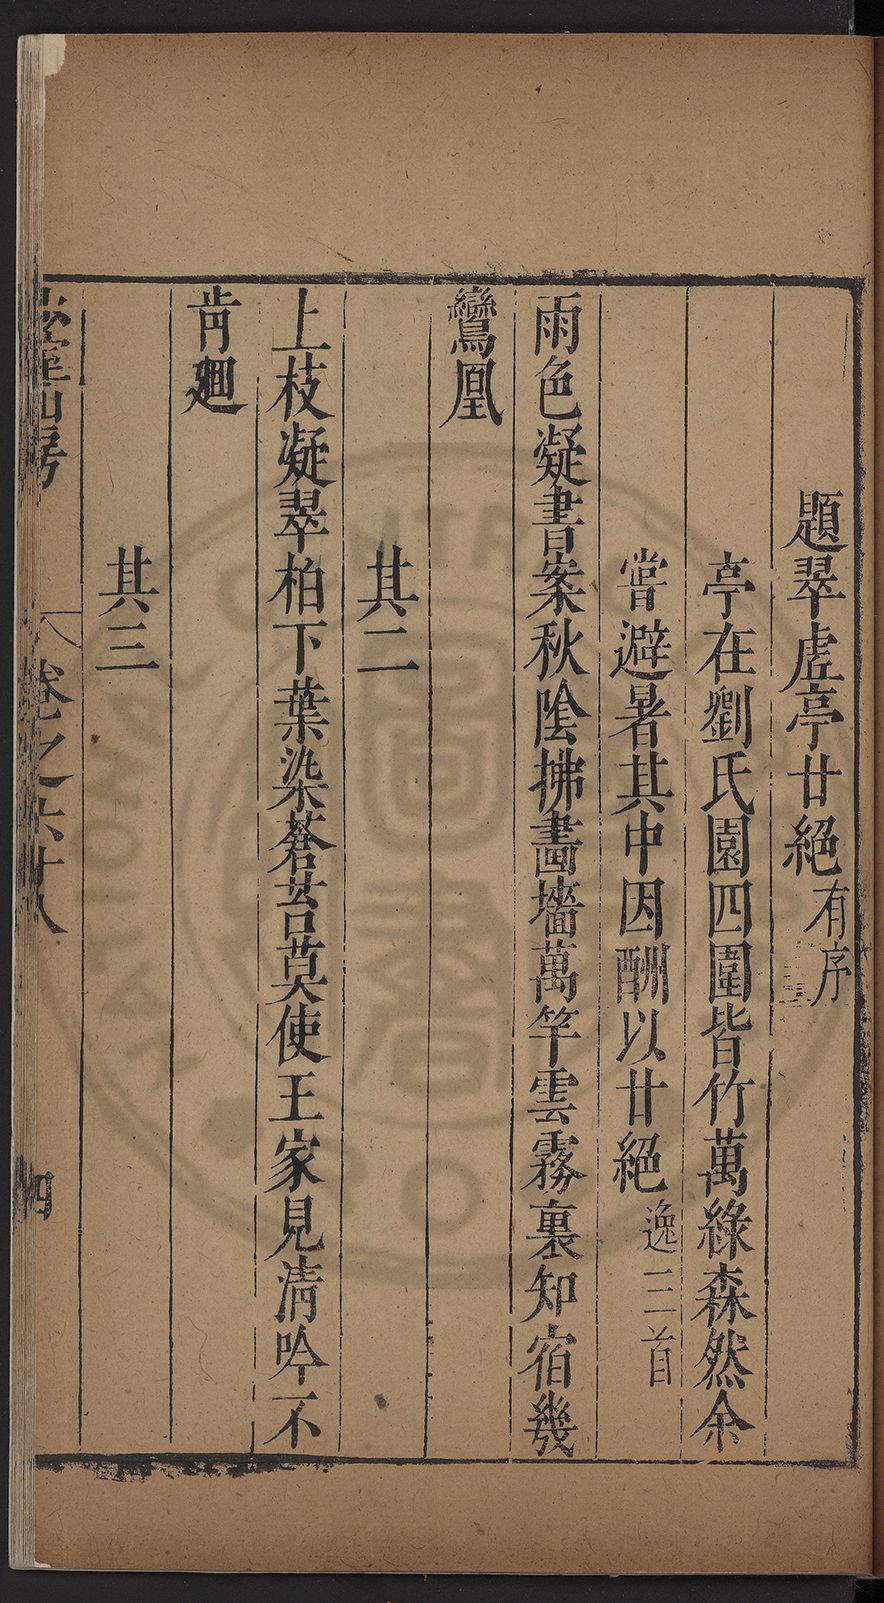 題翠虛亭廿絕有序
亭在劉氏園四圍皆竹萬綠森然余
嘗避暑其中因酬以廿絕逸三首
雨色凝書案秋陰拂畵墻萬竿雲霧裏知宿幾
鸞凰
其二
上枝凝翠柏下葉染蒼苔莫使王家見清吟不
肯廻
其三
山房
卷之六十八
四